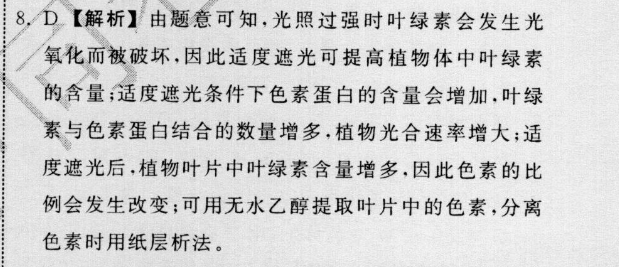 8. D 【解析】由题意可知,光照过强时叶绿素会发生光
氧化而被破坏,因此适度遮光可提高植物体中叶绿素
的含量;适度遮光条件下色素蛋白的含量会增加,叶绿
素与色素蛋白结合的数量增多,植物光合速率增大;适
度遮光后,植物叶片中叶绿素含量增多,因此色素的比
例会发生改变;可用无水乙醇提取叶片中的色素,分离
色素时用纸层析法。